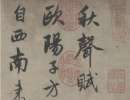 秋聲賦
歐陽子方
自西南来